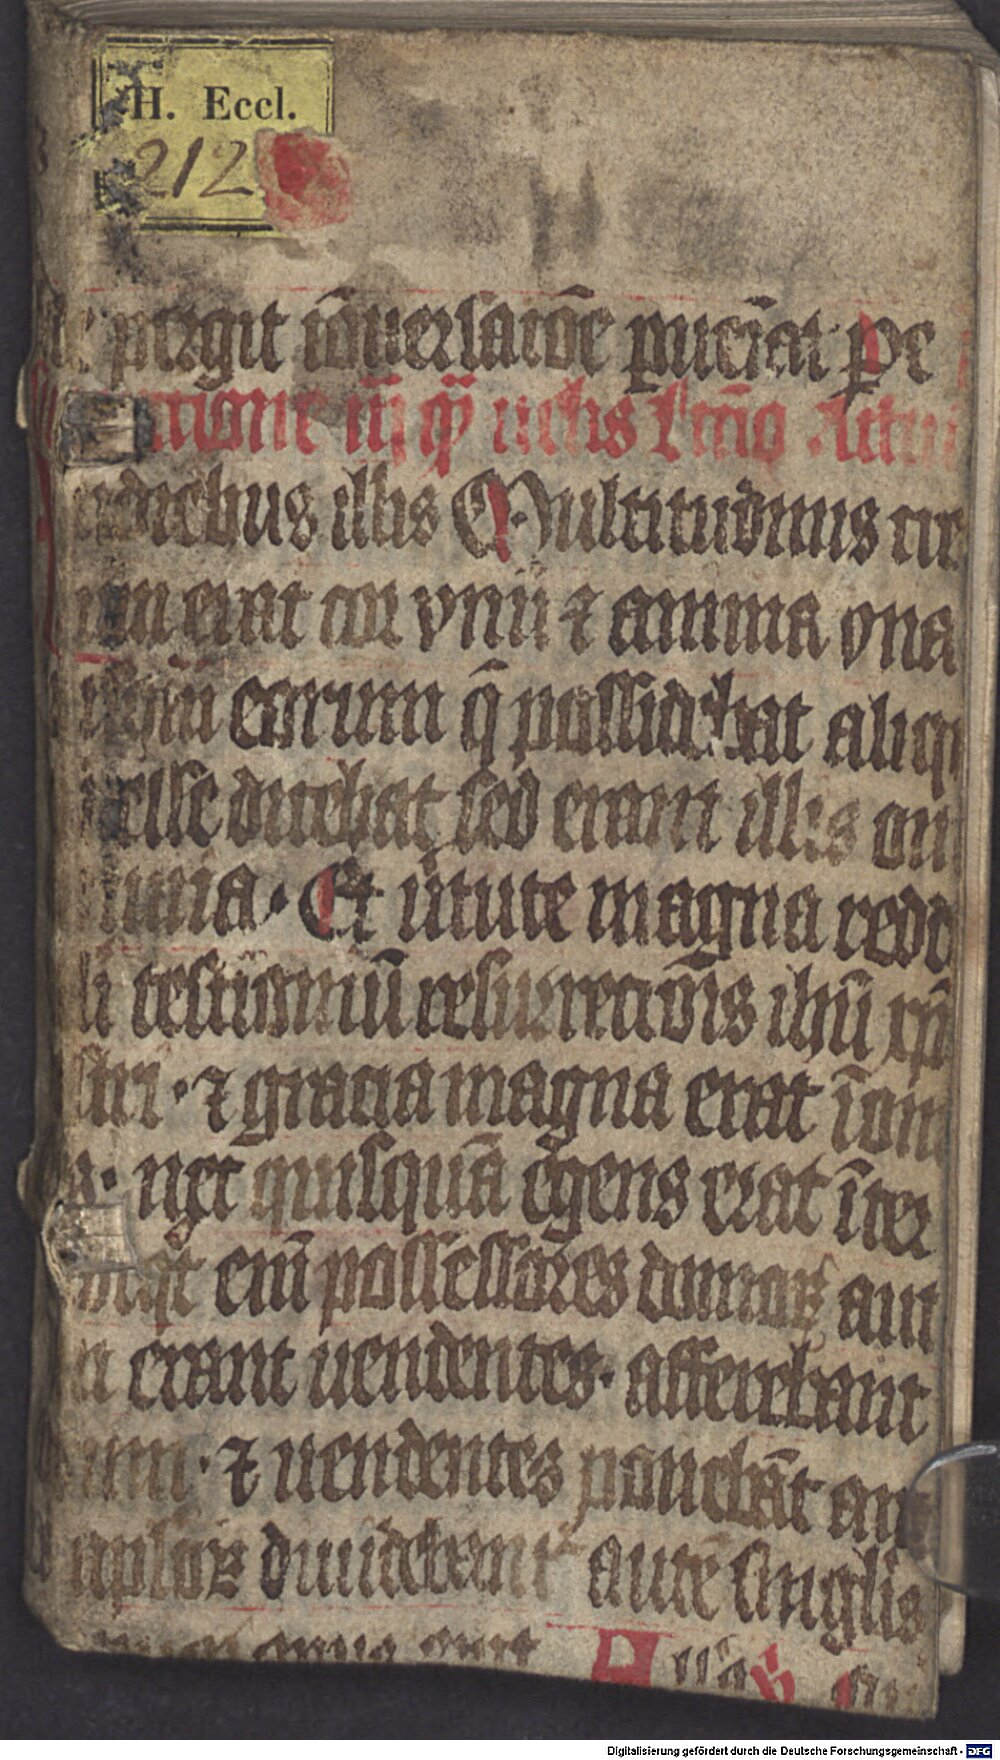 H. Eccl.
212
pergit iōuersatiōe puciat Pe
illis Multitudinis cre
erat cor vnū ⁊ anima vna
eorum q̄ possidebat aliq
esse dicebat sed erant illis om
unia · Et ꝟtute magna redd
testimoniū resurrectiōis ihū xp̄i
stri · ⁊ gracia magna erat ī om
nec quisquā egens erat īter
qt̄ eīm possessores domoꝝ aut
erant uendentes · afferebant
um · ⁊ uendentes ponebāt an
aplōꝝ diuidebant autē singlis
Digitalisierung gefördert durch die Deutsche Forschungsgemeinschaft - DFG